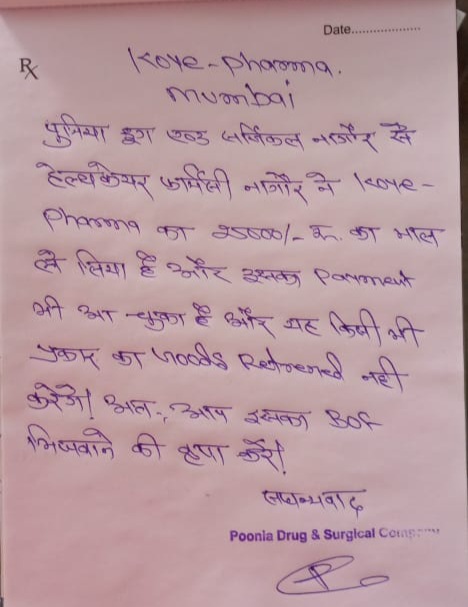 Date...................
Rx
Kove-Pharma.
Mumbai
पुनिया ड्रग एण्ड सर्जिकल नागौर से
हेल्थकेयर फार्मेसी नागौर ने Kove-
Pharma का 25000/- रू. का माल
ले लिया है और इसका Payment
भी आ चुका है और यह किसी भी
प्रकार का Goods Returned नही
करेंगे। अतः, आप इसका
भिजवाने की कृपा करें।
सधन्यवाद
Poonia Drug & Surgical Company